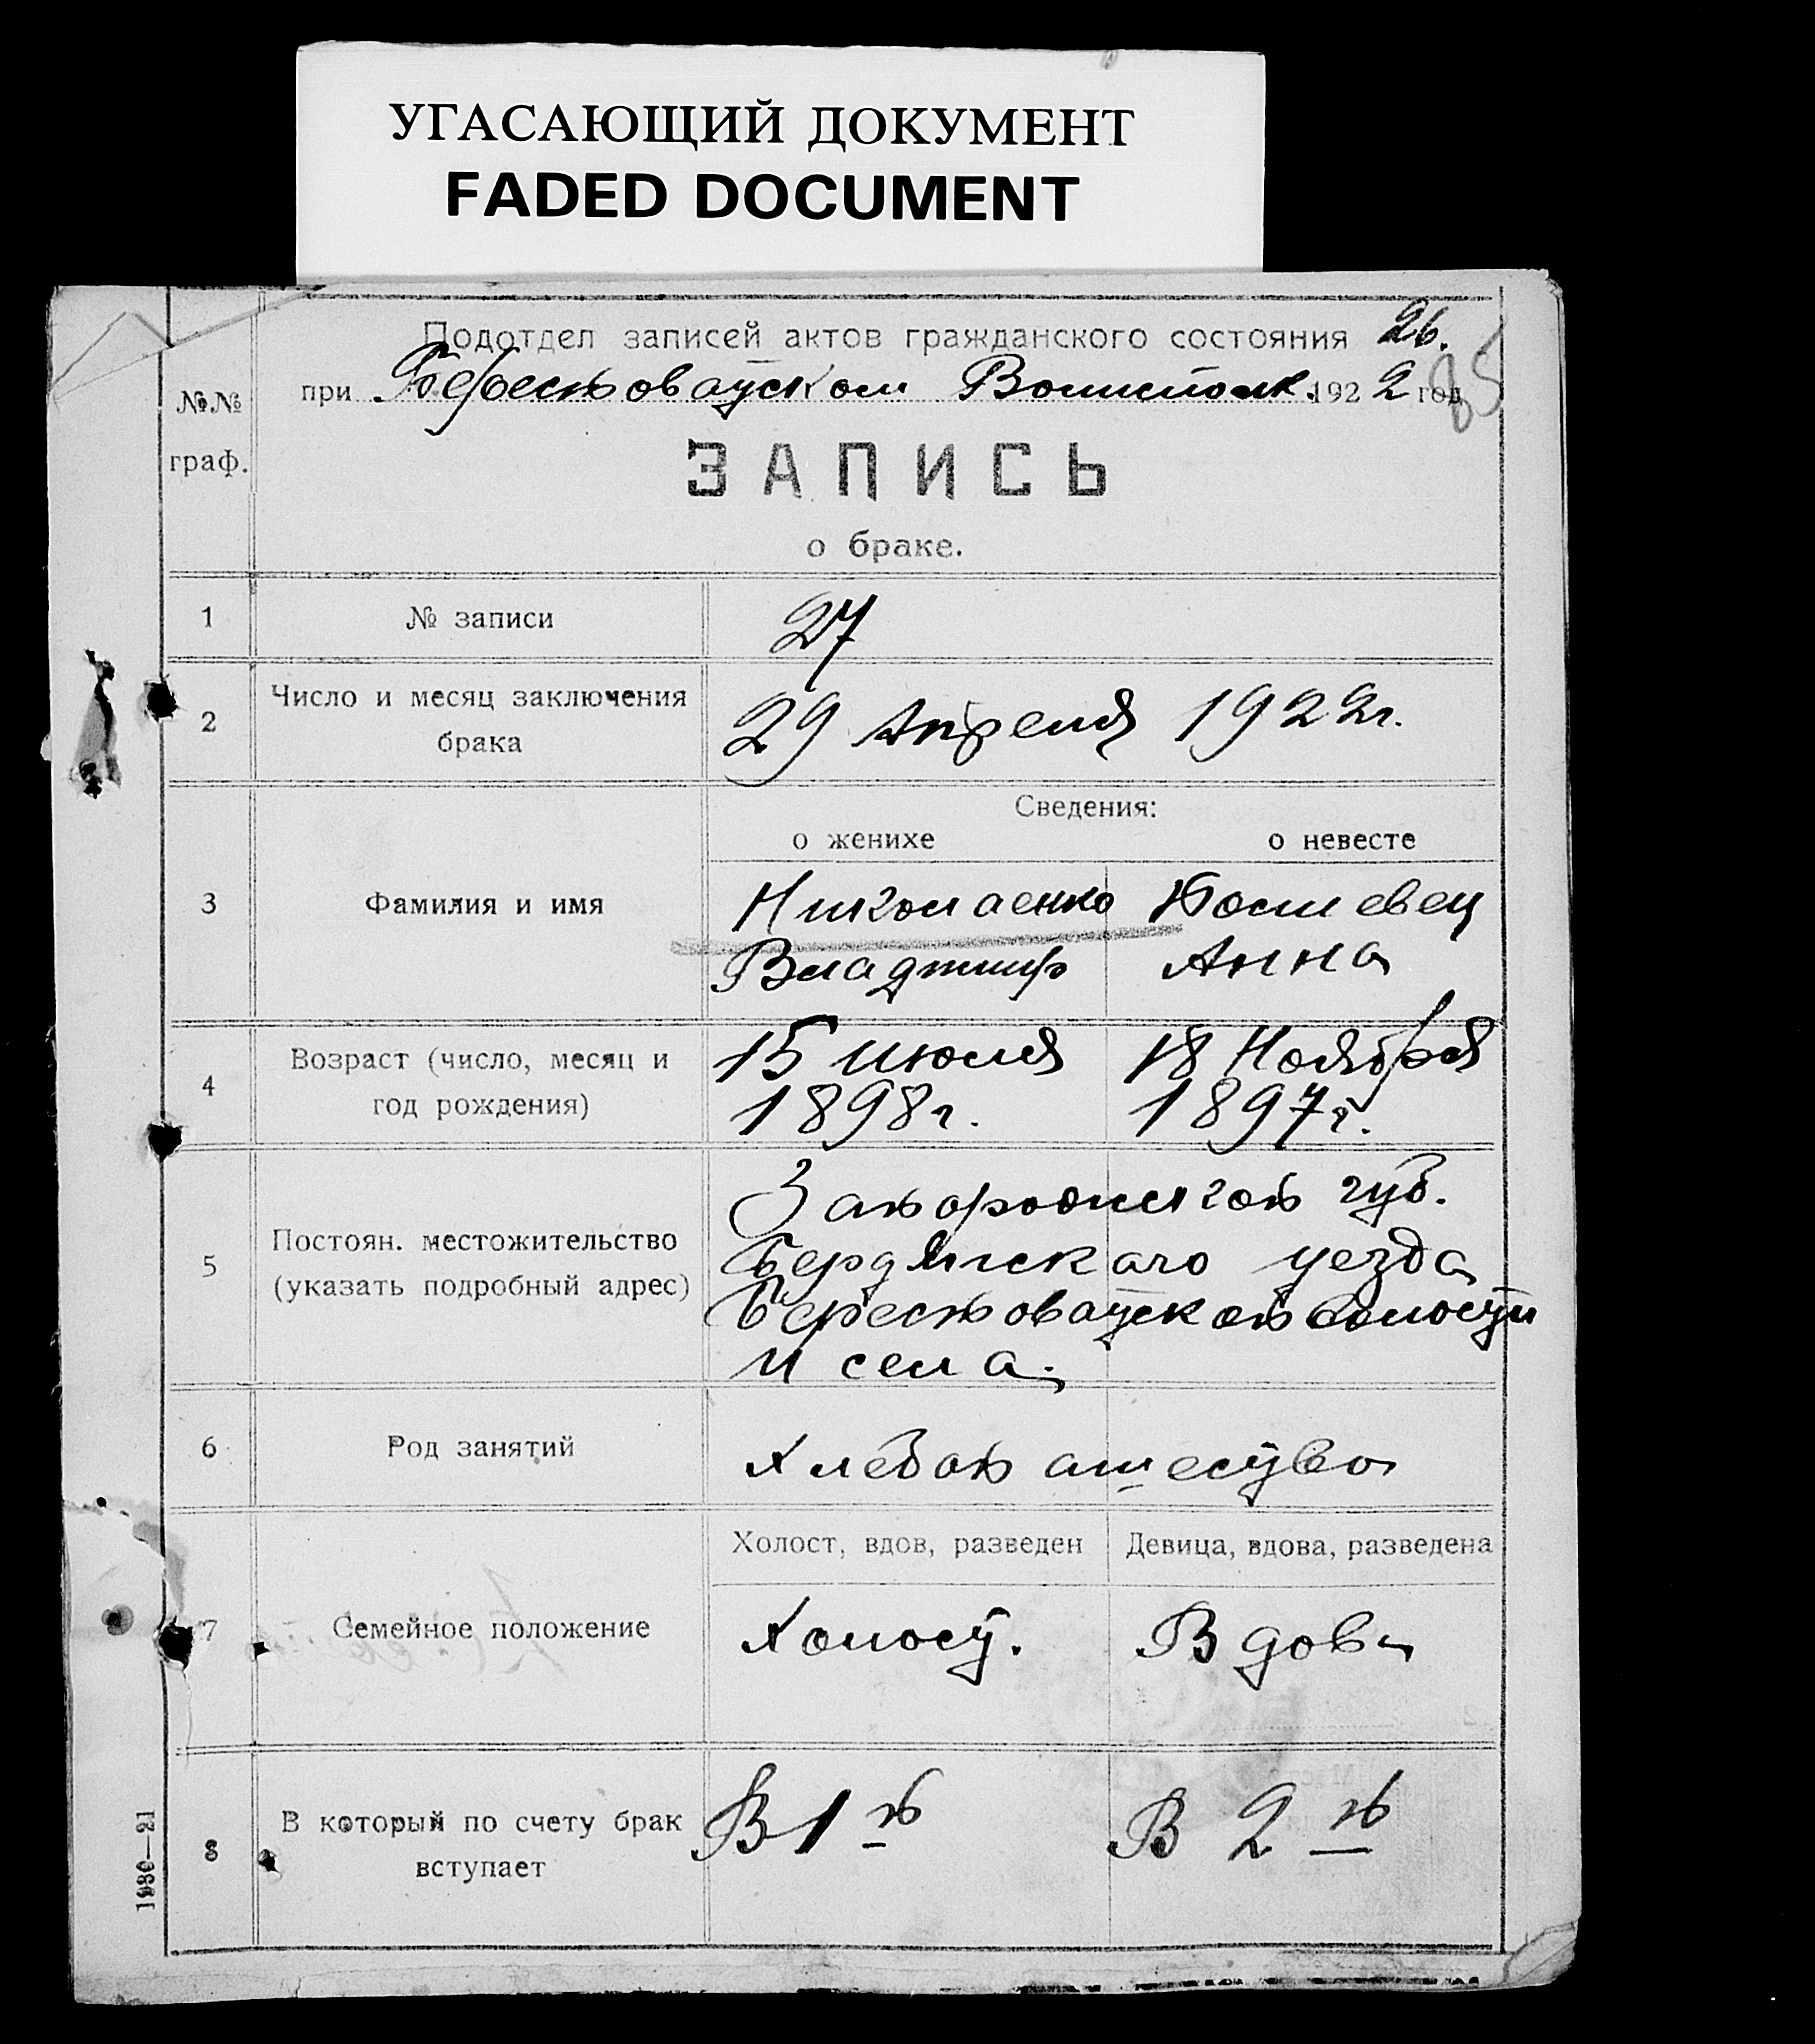 УГАСАЮЩИЙ ДОКУМЕНТ
FADED DOCUMENT
Подотдел записей актов гражданского состояния 26.
при Берестовацком Волисполк. 1922 год
№№
граф.
ЗАПИСЬ
о браке.
1 № записи 27
2 Число и месяц заключения брака 29 Апреля 1922г.
Сведения:
о женихе о невесте
3 Фамилия и имя Николаенко
Владимир Анна
4 Возраст (число, месяц и год рождения) 15 июля 1898г. 18 Ноября 1897г.
5 Постоян. местожительство (указать подробный адрес) Запорожской губ.
Бердянскаго уезда
Берестовацкой волости
и села.
6 Род занятий Хлебопашество
Холост, вдов, разведен Девица, вдова, разведена
7 Семейное положение Холост. Вдова
8 В который по счету брак вступает В 1й В 2й
1980—21